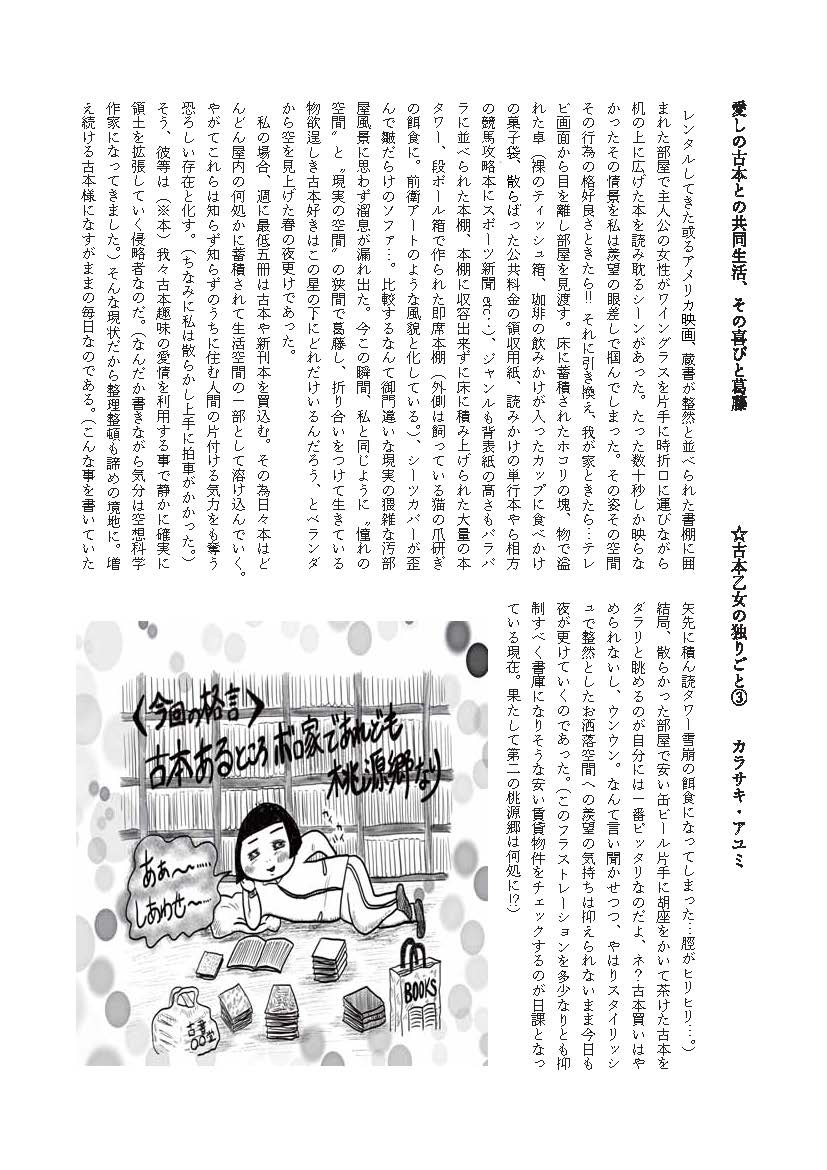 愛しの古本との共同生活、その喜びと葛藤　☆古本乙女の独りごと③　カラサキ・アユミ
　レンタルしてきた或るアメリカ映画、蔵書が整然と並べられた書棚に囲
まれた部屋で主人公の女性がワイングラスを片手に時折口に運びながら
机の上に広げた本を読み耽るシーンがあった。たった数十秒しか映らな
かったその情景を私は羨望の眼差しで掴んでしまった。その姿その空間
その行為の格好良さときたら!! それに引き換え、我が家ときたら…テレ
ビ画面から目を離し部屋を見渡す。床に蓄積されたホコリの塊、物で溢
れた卓（裸のティッシュ箱、珈琲の飲みかけが入ったカップに食べかけ
の菓子袋、散らばった公共料金の領収用紙、読みかけの単行本やら相方
の競馬攻略本にスポーツ新聞 etc…）、ジャンルも背表紙の高さもバラバ
ラに並べられた本棚、本棚に収容出来ずに床に積み上げられた大量の本
タワー、段ボール箱で作られた即席本棚（外側は飼っている猫の爪研ぎ
の餌食に。前衛アートのような風貌と化している。）、シーツカバーが歪
んで皺だらけのソファ…。比較するなんて御門違いな現実の猥雑な汚部
屋風景に思わず溜息が漏れ出た。今この瞬間、私と同じように〝憧れの
空間〟と〝現実の空間〟の狭間で葛藤し、折り合いをつけて生きている
物欲逞しき古本好きはこの星の下にどれだけいるんだろう、とベランダ
から空を見上げた春の夜更けであった。
　私の場合、週に最低五冊は古本や新刊本を買込む。その為日々本はど
んどん屋内の何処かに蓄積されて生活空間の一部として溶け込んでいく。
やがてこれらは知らず知らずのうちに住む人間の片付ける気力をも奪う
恐ろしい存在と化す。（ちなみに私は散らかし上手に拍車がかかった。）
そう、彼等は（※本）我々古本趣味の愛情を利用する事で静かに確実に
領土を拡張していく侵略者なのだ。（なんだか書きながら気分は空想科学
作家になってきました。）そんな現状だから整理整頓も諦めの境地に。増
え続ける古本様になすがままの毎日なのである。（こんな事を書いていた
矢先に積ん読タワー雪崩の餌食になってしまった…脛がヒリヒリ…。）
結局、散らかった部屋で安い缶ビール片手に胡座をかいて茶けた古本を
ダラリと眺めるのが自分には一番ピッタリなのだよ、ネ？古本買いはや
められないし、ウンウン。なんて言い聞かせつつ、やはりスタイリッシ
ュで整然としたお洒落空間への羨望の気持ちは抑えられないまま今日も
夜が更けていくのであった。（このフラストレーションを多少なりとも抑
制すべく書庫になりそうな安い賃貸物件をチェックするのが日課となっ
ている現在。果たして第二の桃源郷は何処に!?）
〈今回の格言〉
古本あるところボロ家であれども
桃源郷なり
あぁ〜……
しあわせ〜…
BOOKS
古書
○○堂